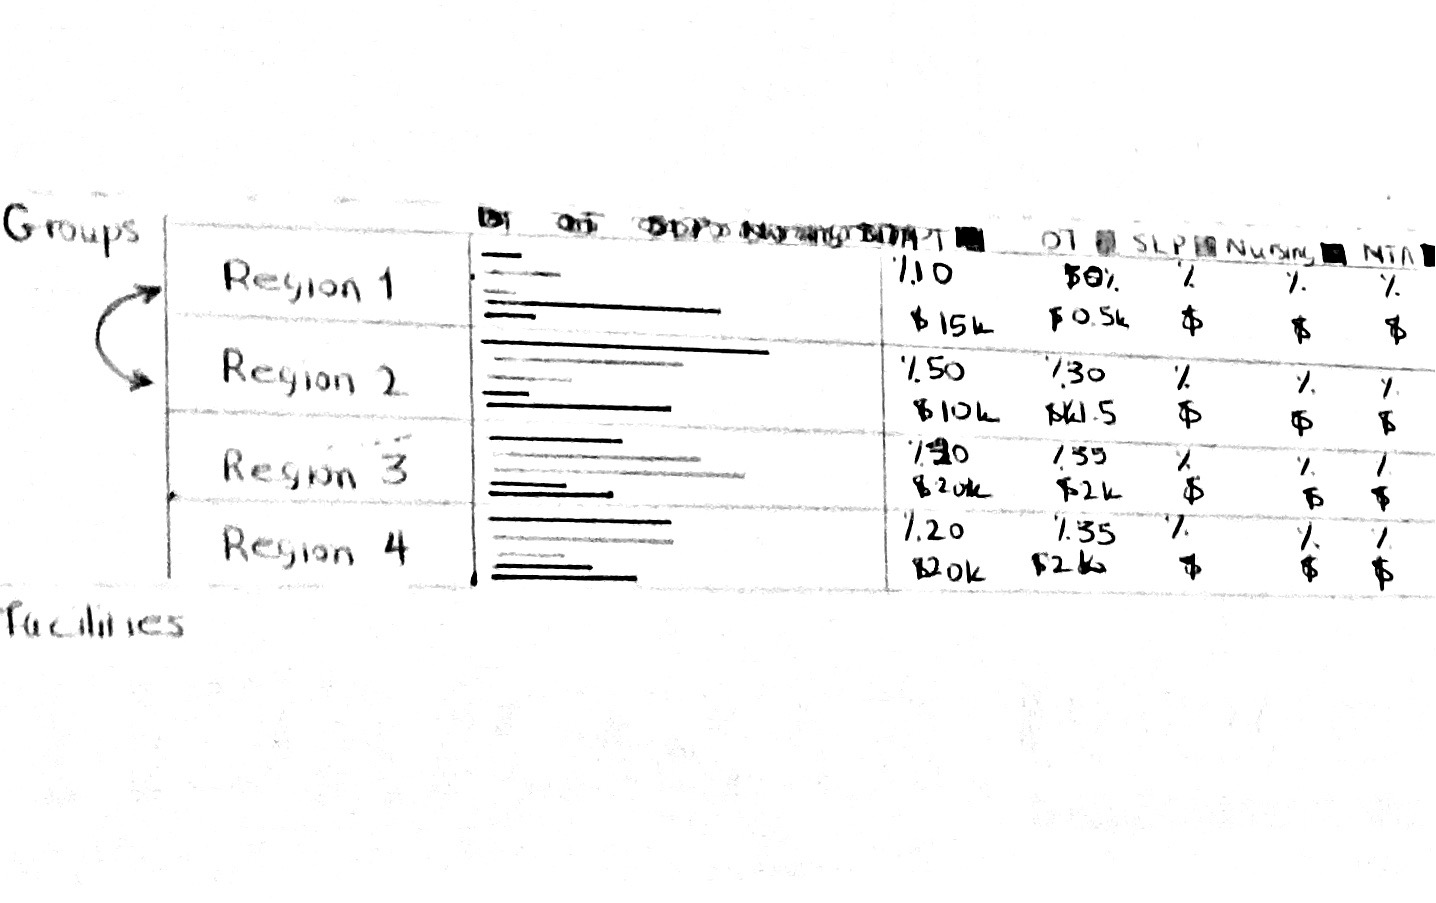 Groups
PT OT SLP Nursing NTA
Region 1
%10 % % %
$15k $0.5k $ $ $
Region 2
%50 %30 % % %
$10k $ $ $
Region 3
%35 % % %
$20k $2k $ $ $
Region 4
%20 %35 % % %
$20k $2k $ $ $
Facilities